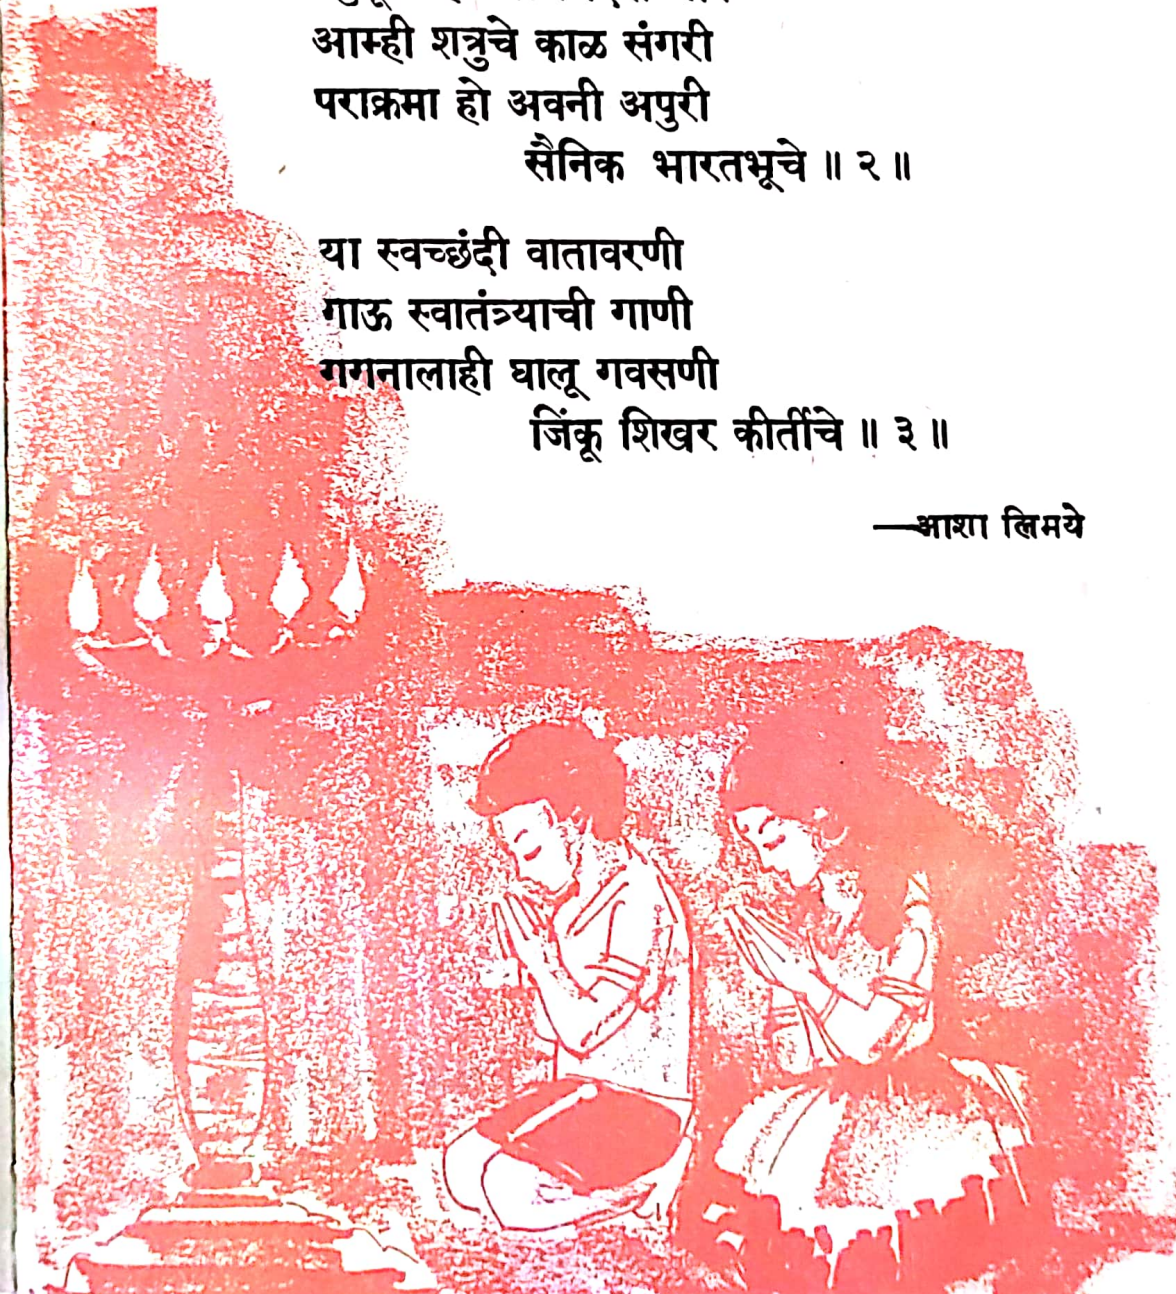 आम्ही शत्रुचे काळ संगरी
पराक्रमा हो अवनी अपुरी
सैनिक भारतभूचे ॥ २ ॥
या स्वच्छंदी वातावरणी
गाऊ स्वातंत्र्याची गाणी
गगनालाही घालू गवसणी
जिंकू शिखर कीर्तीचे ॥ ३ ॥
—आशा लिमये